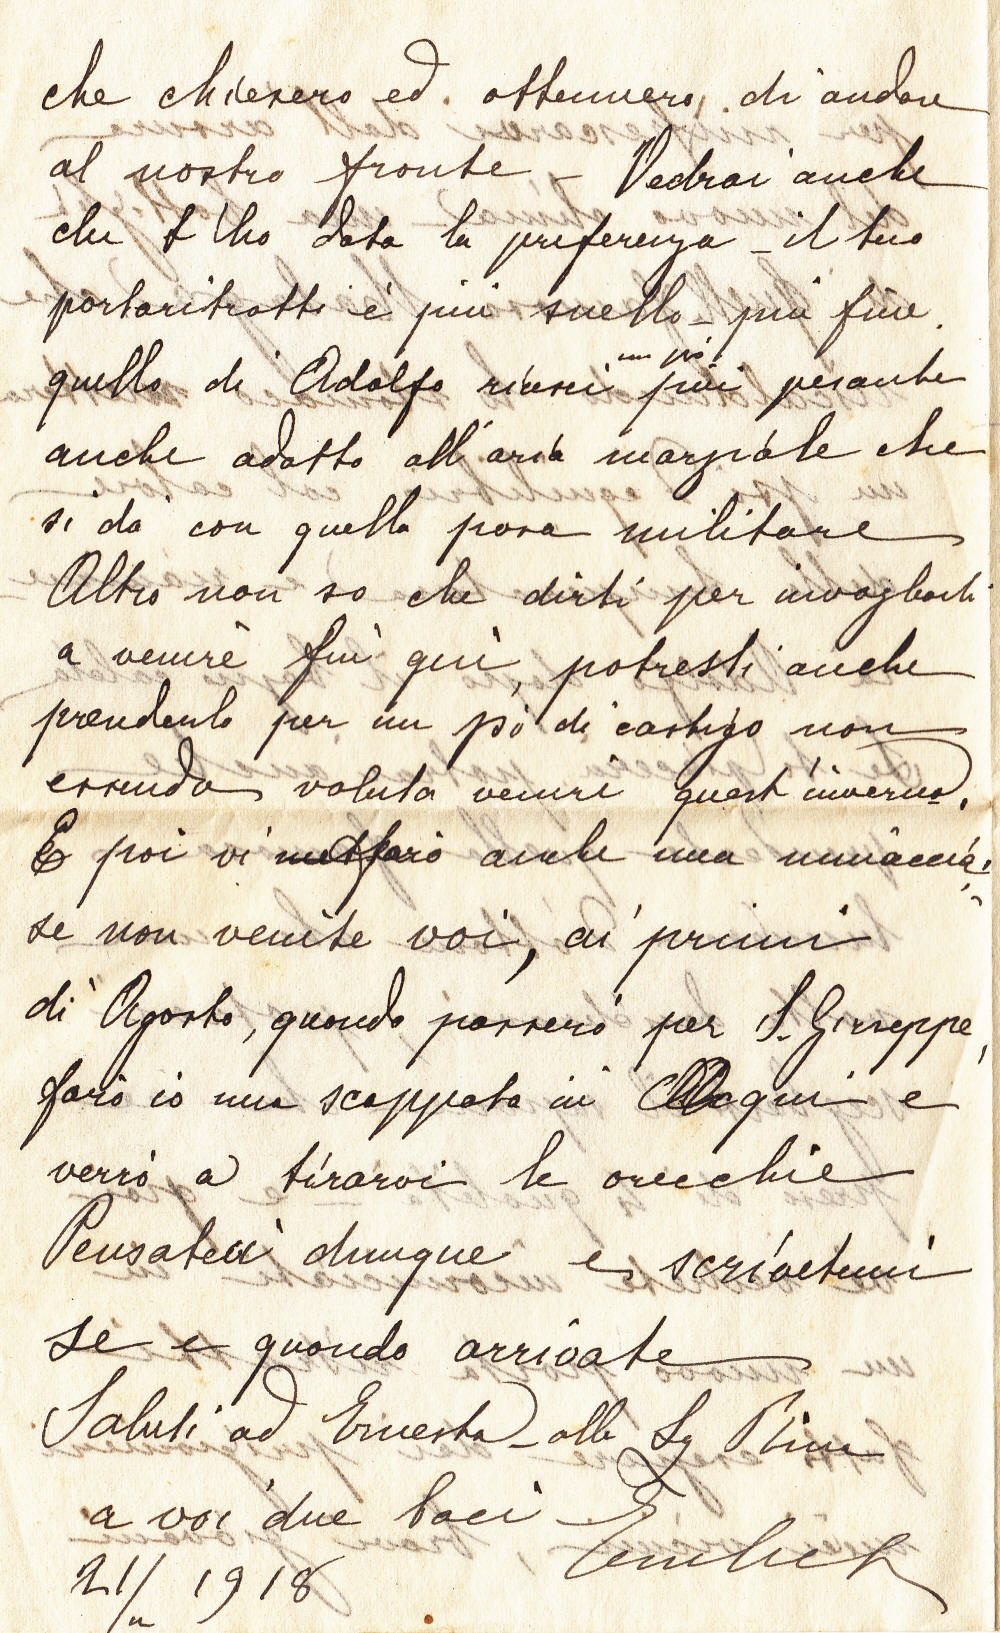 che chiesero ed ottennero, di andare
al nostro fronte – Vedrai anche
che t'ho data la preferenza – il tuo
portaritratti è più snello – più fine.
quello di Adolfo riuscì un pò più pesante
anche adatto all'aria marziale che
si dà con quella posa militare
Altro non so che dirti per invogliarti
a venire fin quì, potresti anche
prenderlo per un pò di castigo non
essendo voluta venire quest'inverno.
E poi vi farò anche una minaccia:
se non venite voi, ai primi
di Agosto, quando passerò per S. Giuseppe,
farò io una scappata in Acqui e
verrò a tirarvi le orecchie
Pensateci dunque e scrivetemi
se e quando arrivate
Saluti ad Ernesta – alla Sg Rina
a voi due baci –
21/ 1918